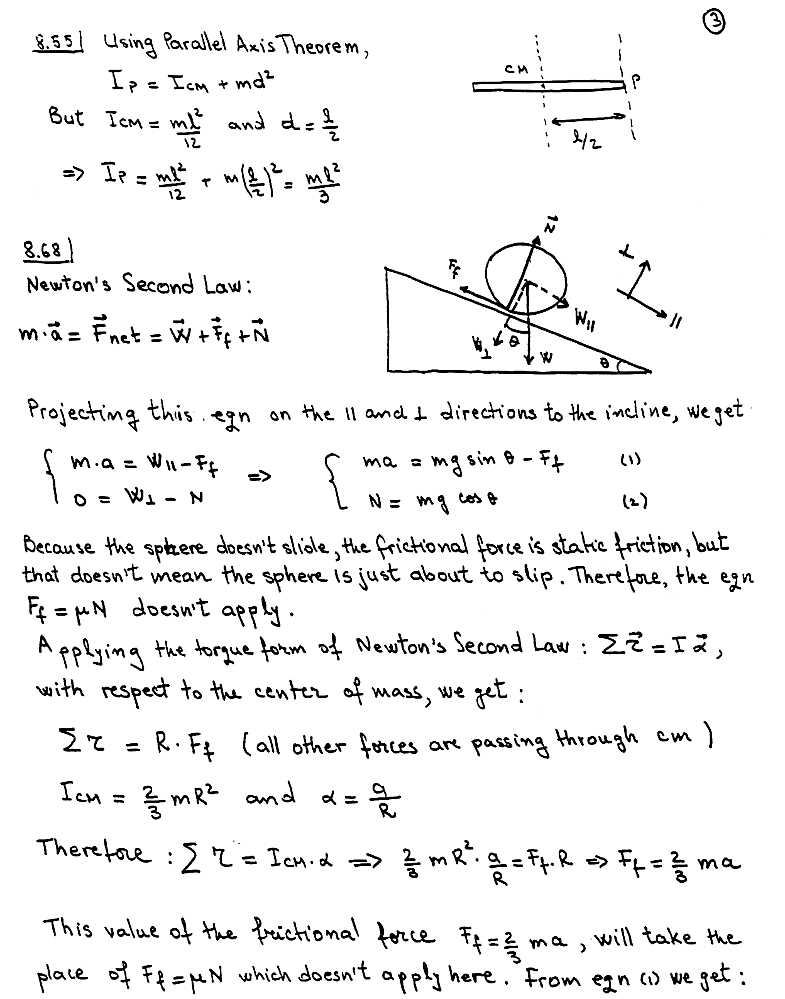 ③
8.55| Using Parallel Axis Theorem,
I_P = I_CM + md²
But I_CM = ml²/12 and d = l/2
=> I_P = ml²/12 + m(l/2)² = ml²/3
CM
P
l/2
8.68|
Newton's Second Law:
m·a⃗ = F⃗net = W⃗ + F⃗f + N⃗
N⃗
Ff
W||
W⊥
θ
W
θ
⊥
||
Projecting this eqn on the || and ⊥ directions to the incline, we get
{ m·a = W|| - Ff => { ma = mg sin θ - Ff (1)
0 = W⊥ - N N = mg cos θ (2)
Because the sphere doesn't slide, the frictional force is static friction, but
that doesn't mean the sphere is just about to slip. Therefore, the eqn
Ff = μN doesn't apply.
Applying the torque form of Newton's Second Law : Στ⃗ = I α⃗,
with respect to the center of mass, we get :
Στ = R·Ff (all other forces are passing through cm)
I_CM = 2/3 mR² and α = a/R
Therefore : Στ = I_CM·α => 2/3 mR²·a/R = Ff·R => Ff = 2/3 ma
This value of the frictional force Ff = 2/3 ma, will take the
place of Ff = μN which doesn't apply here. From eqn (1) we get :